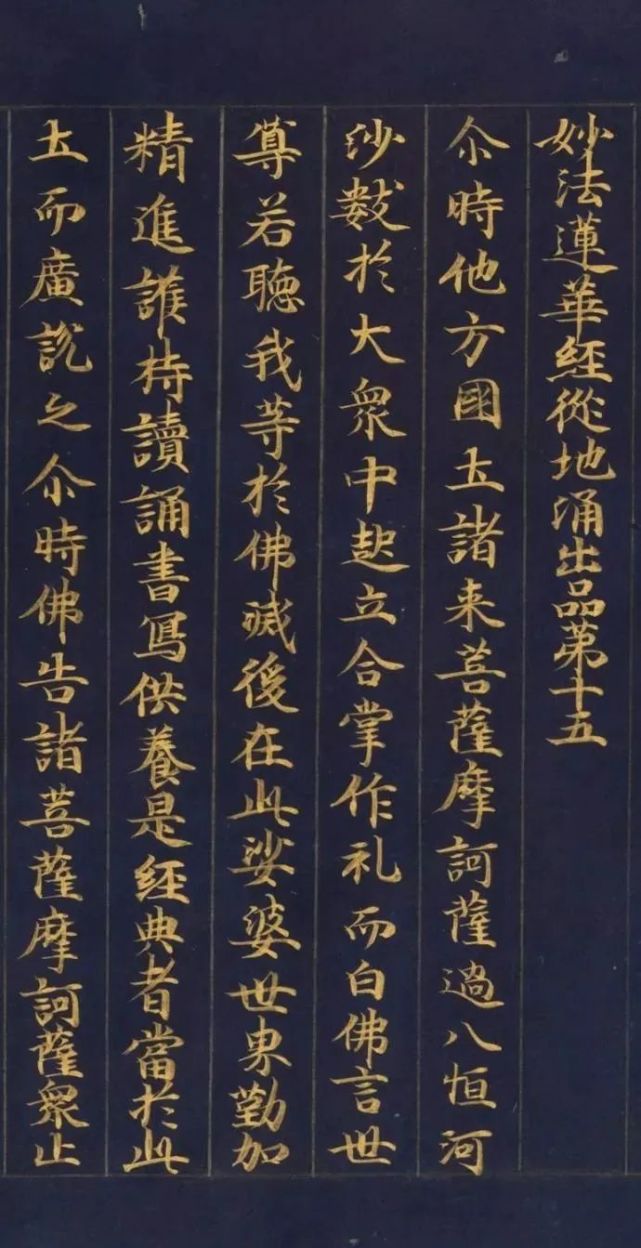 妙法蓮華経從地涌出品第十五
尒時他方國土諸来菩薩摩訶薩過八恒河
沙數於大衆中起立合掌作礼而白佛言世
尊若聴我等於佛滅後在此娑婆世界勤加
精進護持讀誦書寫供養是経典者當於此
土而廣説之尒時佛告諸菩薩摩訶薩衆止